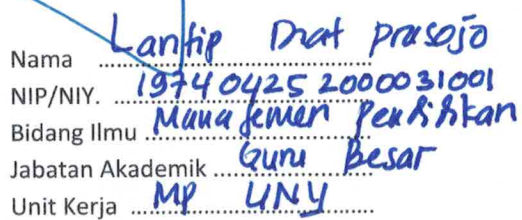 Nama Lantip Diat prasojo
NIP/NIY. 19740425 2000031001
Bidang Ilmu Manajemen Pendidikan
Jabatan Akademik Guru Besar
Unit Kerja MP UNY